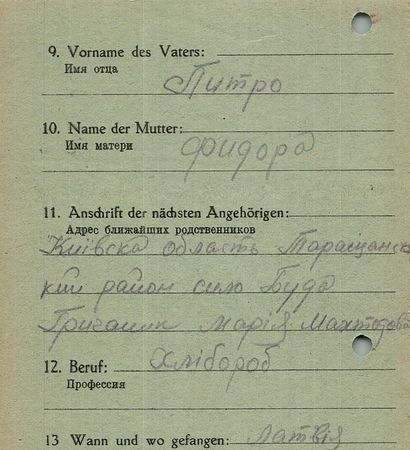 9. Vorname des Vaters:
Имя отца
Питро
10. Name der Mutter:
Имя матери
Фидора
11. Anschrift der nächsten Angehörigen:
Адрес ближайших родственников
Київска область Таращанс
кий район сило Буда
Марія
12. Beruf: Хлібороб
Профессия
13 Wann und wo gefangen: Латвія